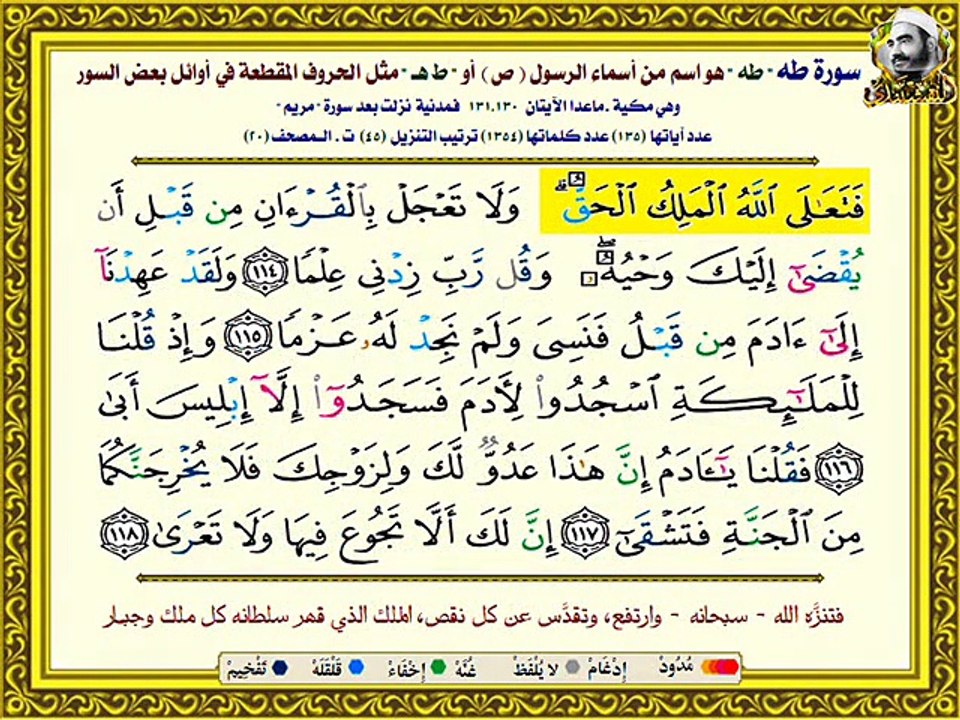 سورة طه - طه - هو اسم من أسماء الرسول ( ص ) أو - ط هـ - مثل الحروف المقطعة في أوائل بعض السور
وهي مكية . ماعدا الآيتان ١٣١.١٣٠ فمدنية نزلت بعد سورة - مريم -
عدد آياتها (١٣٥) عدد كلماتها (١٣٥٤) ترتيب التنزيل (٤٥) ت . المصحف (٢٠)
فَتَعَٰلَى ٱللَّهُ ٱلْمَلِكُ ٱلْحَقُّ ۗ وَلَا تَعْجَلْ بِٱلْقُرْءَانِ مِن قَبْلِ أَن
يُقْضَىٰٓ إِلَيْكَ وَحْيُهُۥ ۖ وَقُل رَّبِّ زِدْنِى عِلْمًا ١١٤ وَلَقَدْ عَهِدْنَآ
إِلَىٰٓ ءَادَمَ مِن قَبْلُ فَنَسِىَ وَلَمْ نَجِدْ لَهُۥ عَزْمًا ١١٥ وَإِذْ قُلْنَا
لِلْمَلَٰٓئِكَةِ ٱسْجُدُوا۟ لِـَٔادَمَ فَسَجَدُوٓا۟ إِلَّآ إِبْلِيسَ أَبَىٰ
١١٦ فَقُلْنَا يَٰٓـَٔادَمُ إِنَّ هَٰذَا عَدُوٌّ لَّكَ وَلِزَوْجِكَ فَلَا يُخْرِجَنَّكُمَا
مِنَ ٱلْجَنَّةِ فَتَشْقَىٰٓ ١١٧ إِنَّ لَكَ أَلَّا تَجُوعَ فِيهَا وَلَا تَعْرَىٰ ١١٨
فتنزَّه الله - سبحانه - وارتفع، وتقدَّس عن كل نقص، الملك الذي قهر سلطانه كل ملك وجبار
مُدُودْ إِدْغَامْ لا يُلْفَظْ غُنَّهْ إِخْفَاءْ قَلْقَلَهْ تَفْخِيمْ